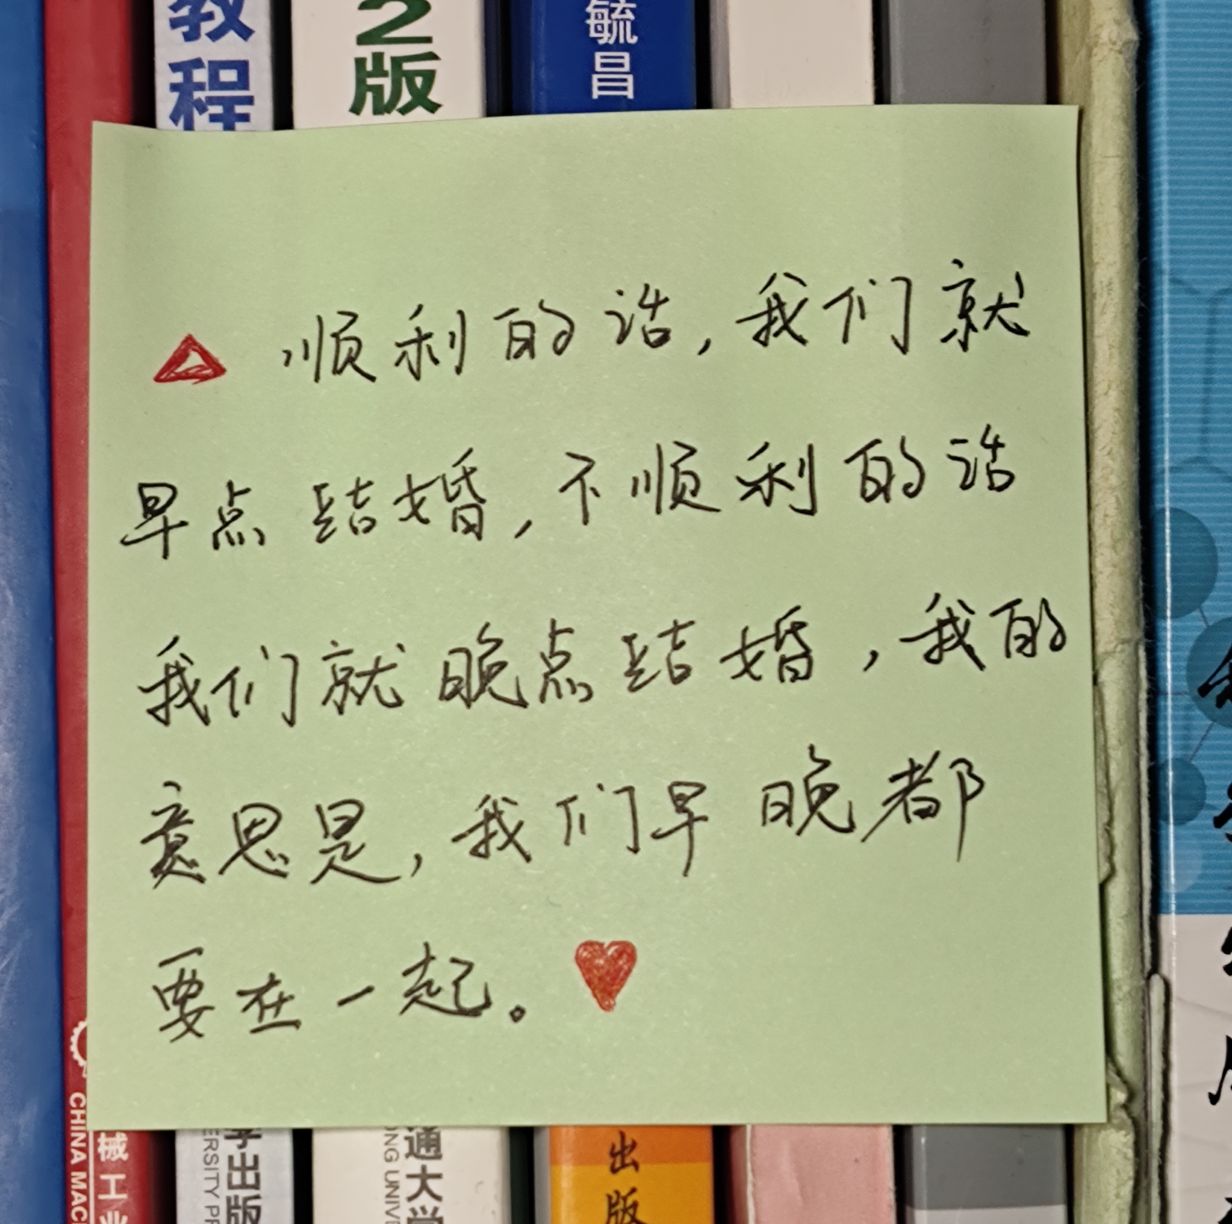 教程
2版
毓昌
顺利的话，我们就
早点结婚，不顺利的话
我们就晚点结婚，我的
意思是，我们早晚都
要在一起。
CHINA MAC
械工业
学出版
ERSITY PR
通大学
ONG UNIVE
出版